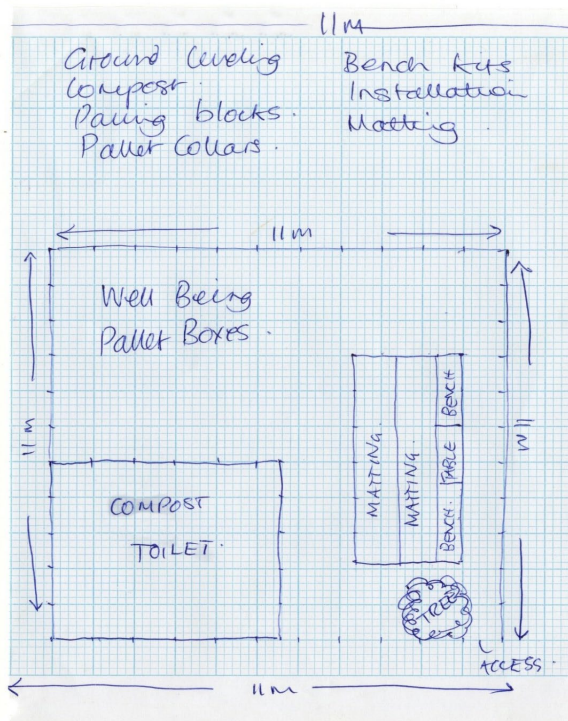 11m
Ground leveling
Compost.
Paving blocks.
Pallet Collars.
Bench Kits
Installation
Matting.
11m
Well Being
Pallet Boxes.
11m
11m
MATTING.
MATTING
BENCH. TABLE BENCH
COMPOST
TOILET.
TREE
ACCESS.
11m